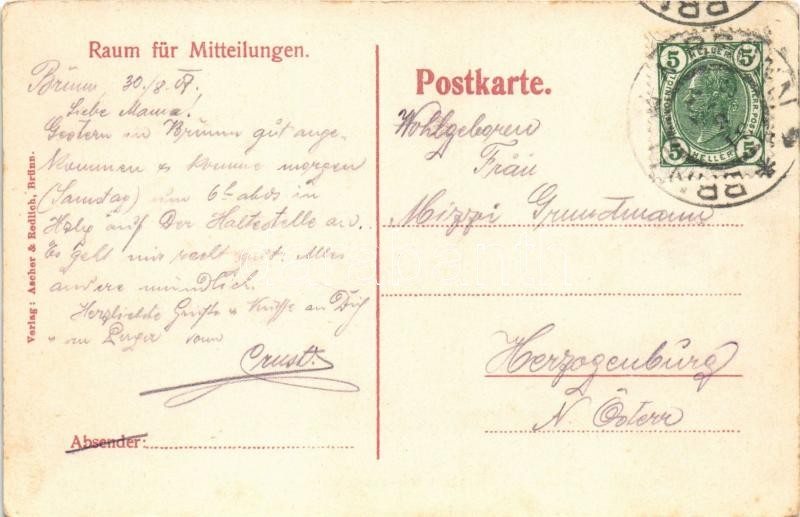 Raum für Mitteilungen.
Brünn, 30./8. 07.
Liebe Mama!
Gestern in Brünn gut ange-
kommen & komme morgen
(Samstag) um 6h abds in
Hzbg auf Der Haltestelle an.
Es geht mir recht gut. Alles
andere mündlich.
Herzlichste Grüße & Küsse an Dich
vom
Ernst.
Absender:
Verlag: Ascher & Redlich, Brünn.
Postkarte.
Wohlgeboren
Frau
Mizzi Grundmann
Herzogenburg
N. Österr
5 5
5 HELLER 5